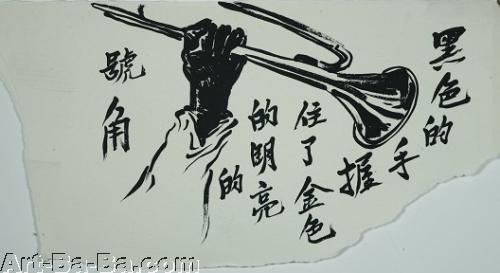 黑色的
手
握
住了金色
的明亮
的
號角
Art-Ba-Ba.com